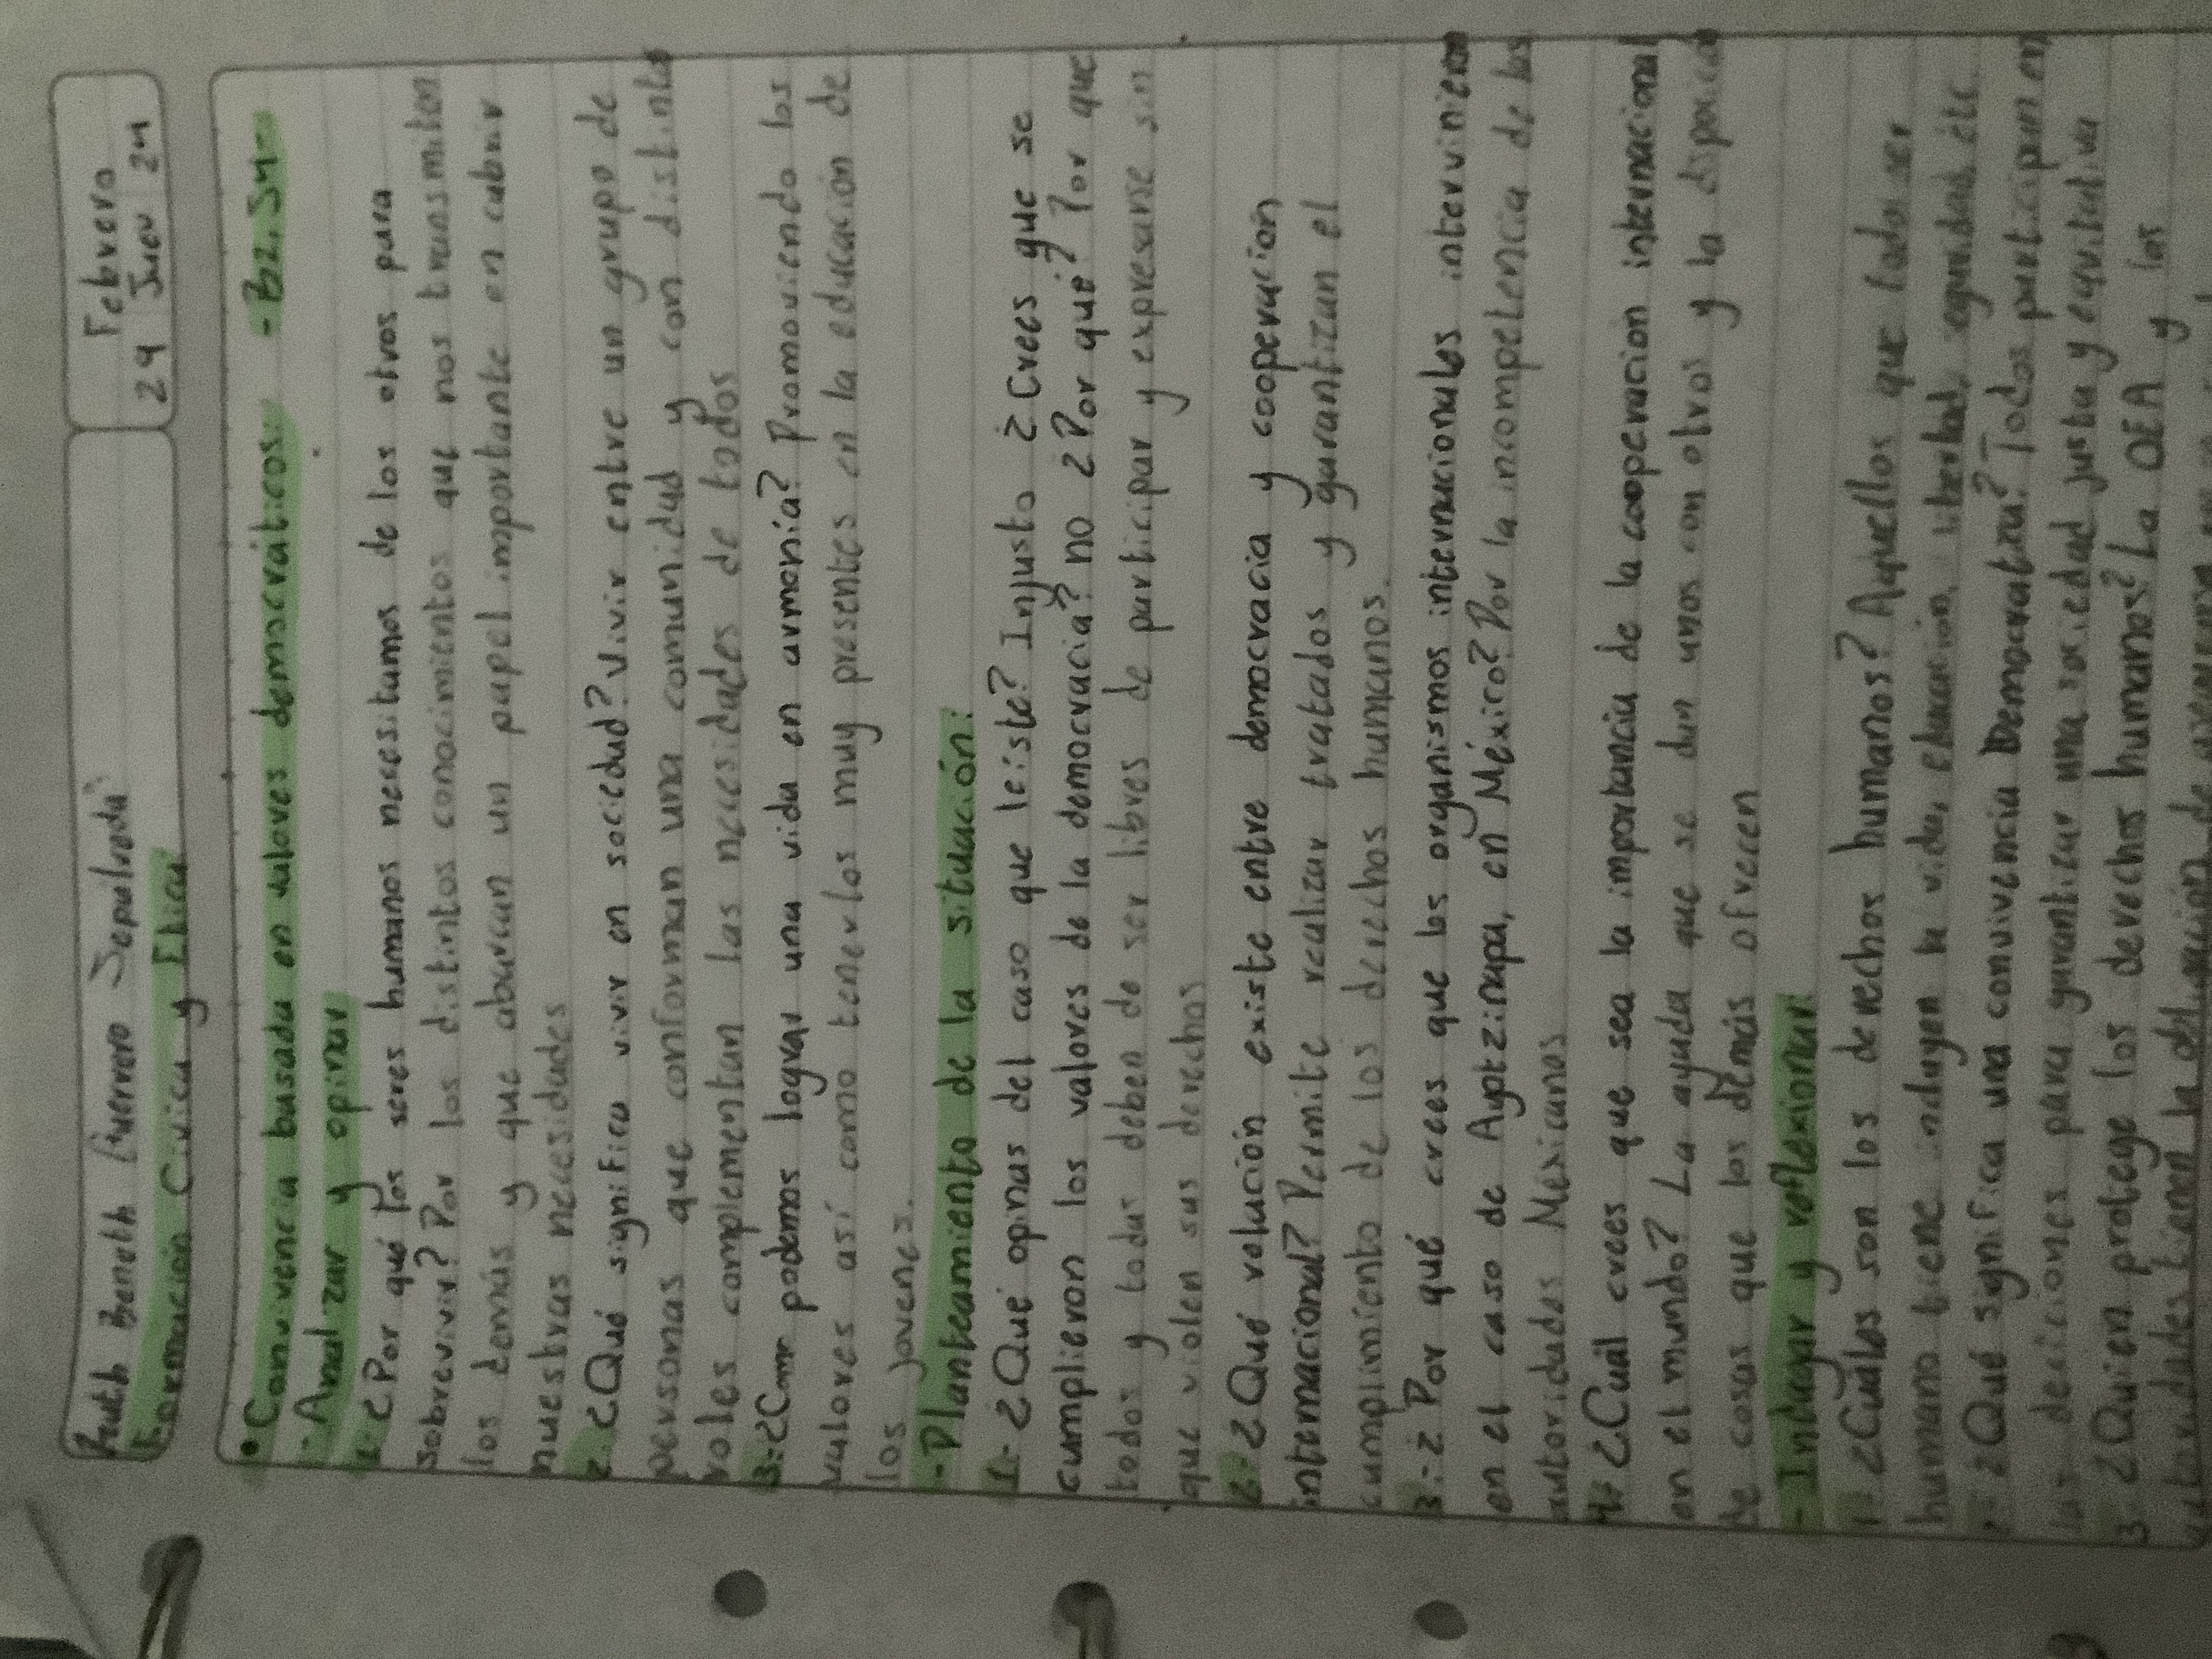 Guerrero Sepulveda
Formación Cívica y Ética
Febrero
29 Juev 24
• Convivencia basada en valores democráticos: -Pz. 54-
- Analizar y opinar
1.- ¿Por qué los seres humanos necesitamos de los otros para
sobrevivir? Por los distintos conocimientos que nos transmiten
los demás y que abarcan un papel importante en cubrir
nuestras necesidades
2.- ¿Qué significa vivir en sociedad? Vivir entre un grupo de
personas que conforman una comunidad y con distintos
roles complementan las necesidades de todos
3.- ¿Como podemos lograr una vida en armonía? Promoviendo los
valores así como tenerlos muy presentes en la educación de
los jovenes.
- Planteamiento de la situación:
1.- ¿Qué opinas del caso que leíste? Injusto ¿Crees que se
cumplieron los valores de la democracia? no ¿Por qué? Por que
todos y todas deben de ser libres de participar y expresarse sin
que violen sus derechos
2.- ¿Qué relación existe entre democracia y cooperación
internacional? Permite realizar tratados y garantizan el
cumplimiento de los derechos humanos.
3.- ¿Por qué crees que los organismos internacionales intervinieron
en el caso de Ayotzinapa, en México? Por la incompetencia de las
autoridades Mexicanas
4.- ¿Cuál crees que sea la importancia de la cooperación internacional
en el mundo? La ayuda que se dan unos con otros y la disposición
de cosas que los demás ofrecen
- Indagar y reflexionar:
1.- ¿Cuáles son los derechos humanos? Aquellos que todo ser
humano tiene incluyen la vida, educación, libertad, equidad, etc.
2.- ¿Qué significa una convivencia Democratica? Todos participan en
las deciciones para garantizar una sociedad justa y equitativa
3.- ¿Quien protege los derechos humanos? La OEA y las
autoridades tienen la obligación de